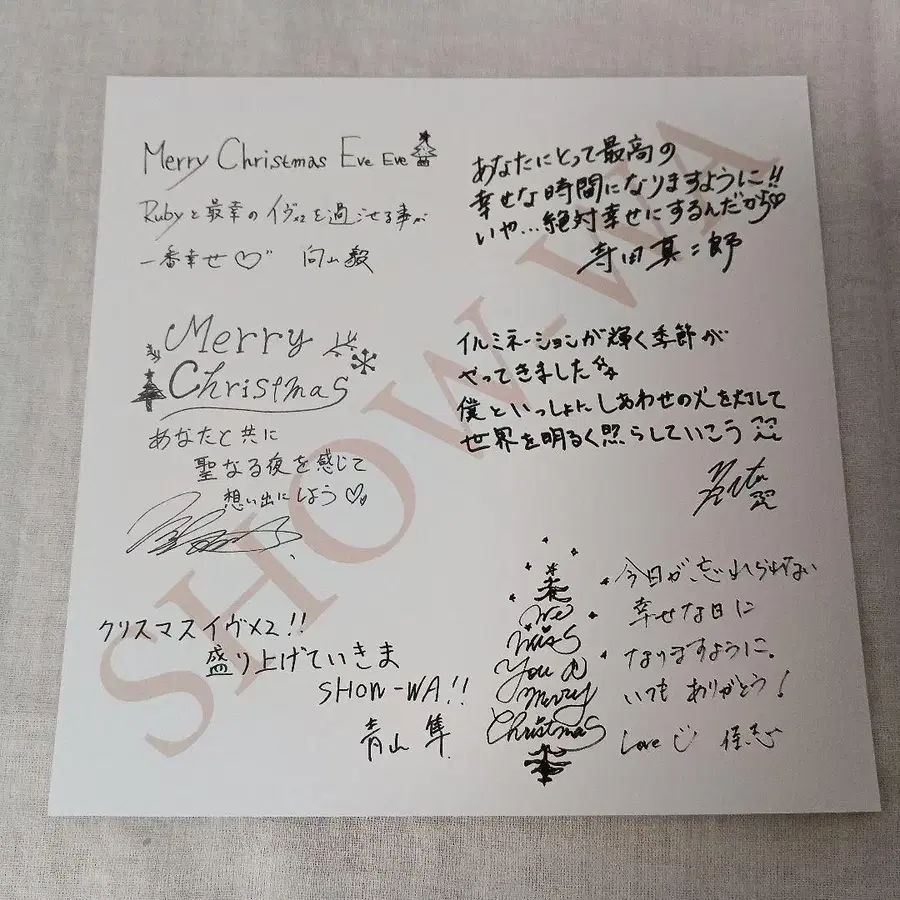 Merry Christmas Eve Eve
Rubyと最幸のイヴ×2を過ごせる事が
一番幸せ♡ 向山毅
あなたにとって最高の
幸せな時間になりますように!!
いや…絶対幸せにするんだから♡
寺田真二郎
Merry
Christmas
あなたと共に
聖なる夜を感じて
想い出にしよう♡
イルミネーションが輝く季節が
やってきました
僕といっしょにしあわせの火を灯して
世界を明るく照らしていこう
クリスマスイヴ×2!!
盛り上げていきま
SHOW-WA!!
青山 隼
We
Wish
You a
Merry
Christmas
今日が忘れられない
幸せな日に
なりますように。
いつもありがとう!
Love
SHOW-WA